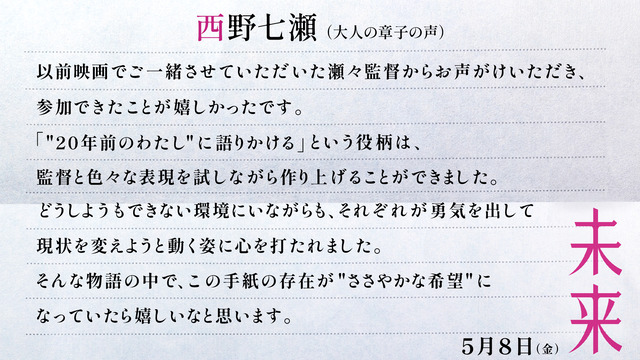 西野七瀬（大人の章子の声）
以前映画でご一緒させていただいた瀬々監督からお声がけいただき、
参加できたことが嬉しかったです。
「"20年前のわたし"に語りかける」という役柄は、
監督と色々な表現を試しながら作り上げることができました。
どうしようもできない環境にいながらも、それぞれが勇気を出して
現状を変えようと動く姿に心を打たれました。
そんな物語の中で、この手紙の存在が"ささやかな希望"に
なっていたら嬉しいなと思います。
未来
5月8日(金)